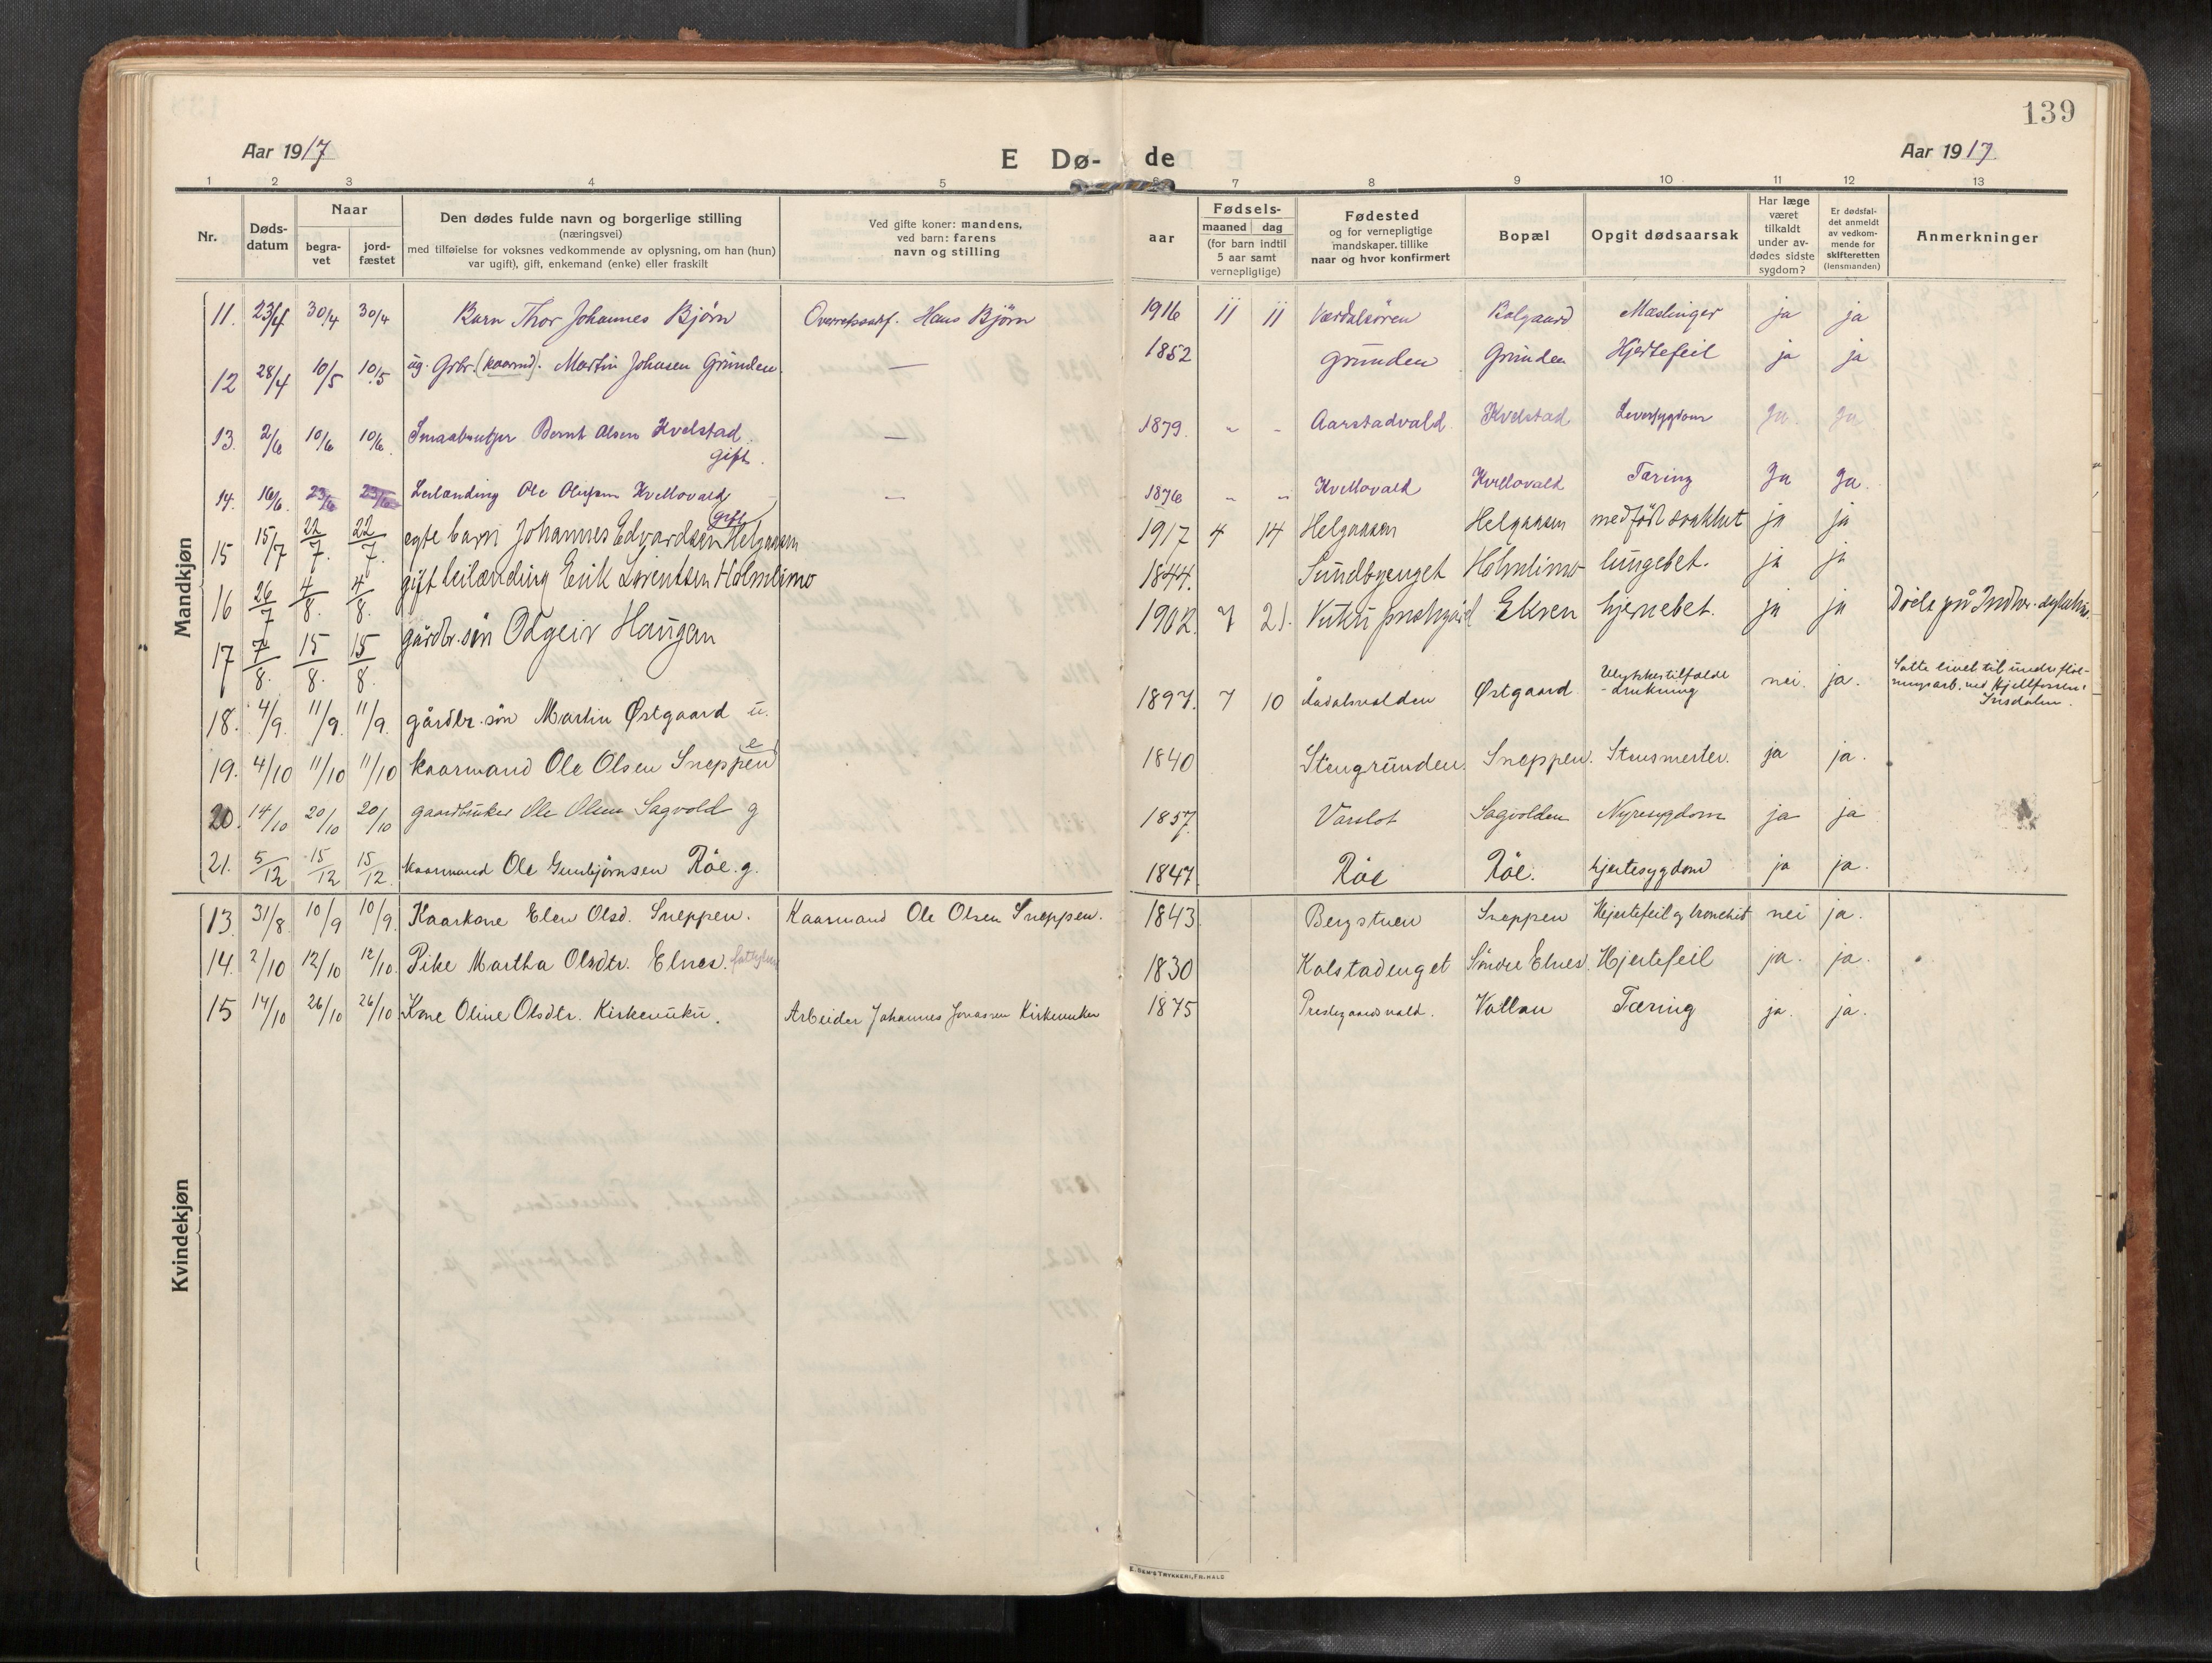 139
Aar 1917
E Dø- de
Aar 1917.
1 2 3 4 5 6 7 8 9 10 11 12 13
Nr.
Døds-
datum
Naar
begra-
vet
jord-
fæstet
Den dødes fulde navn og borgerlige stilling
(næringsvei)
med tilføielse for voksnes vedkommende av oplysning, om han (hun)
var ugift), gift, enkemand (enke) eller fraskilt
Ved gifte koner: mandens,
ved barn: farens
navn og stilling
aar
Fødsels-
maaned dag
(for barn indtil
5 aar samt
vernepligtige)
Fødested
og for vernepligtige
mandskaper, tillike
naar og hvor konfirmert
Bopæl
Opgit dødsaarsak
Har læge
været
tilkaldt
under av-
dødes sidste
sygdom?
Er dødsfal-
det anmeldt
av vedkom-
mende for
skifteretten
(lensmanden)
Anmerkninger
Mandkjøn
11. 23/4 30/4 30/4 Barn Thor Johannes Bjørn Overretssakf. Hans Bjørn 1916 11 11 Værdalsøren Bolgaard Mæslinger ja ja
12 28/4 10/5 10/5 ug. Grbr. (kaarmd). Martin Johnsen Grunden. — 1852 Grunden Grunden Hjertefeil ja ja
13. 2/6 10/6 10/6 Smaabruker Bernt Olsen Kvelstad. — 1879. " " Aarstadvald Kvelstad Leversygdom Ja. Ja
gift.
14. 16/6. 23/6 23/6 Leilænding Ole Olufsen Kvellovald — 1876 " " Kvellovald Kvellovald Tæring Ja Ja.
gift
15 15/7 22/7. 22/7. egte barn Johannes Edvardsen Helgaasen 1917 4 14 Helgaasen Helgaasen medfødt svakhet ja ja
16 26/7 4/8. 4/8. gift leilænding Erik Lorentsen Holmlimo 1844. Sundbyenget Holmlimo lungebet. ja ja
17 7/8. 15/8. 15/8. gårdbr. søn Odgeir Haugan 1902. 7 21. Vuku prestegård Ekren hjernebet. ja ja Døde på Indhr. sykehus.
18. 4/9. 11/9. 11/9. gårdbr. søn Martin Østgaard u. 1897. 7 10 Aadalsvolden Østgaard Ulykkestilfælde
-drukning nei. ja. Satte livet til under fløt-
ningsarb. ved Kjellfossen i
Insdalen.
19. 4/10 11/10 11/10 kaarmand Ole Olsen Sneppen e 1840 Stengrunden. Sneppen. ja ja.
20. 14/10 20/10 20/10 gaardbruker Ole Olsen Sagvold g 1857. Varslot Sagvolden Nyresygdom ja ja
21. 5/12 15/12 15/12. kaarmand Ole Gunbjørnsen Röe. g. 1847. Röe Röe. hjertesygdom ja ja.
Kvindekjøn
13. 31/8. 10/9 10/9. Kaarkone Elen Olsd. Sneppen. Kaarmand Ole Olsen Sneppen. 1843 Bergstuen Sneppen Hjertefeil og bronchit nei ja.
14. 2/10 12/10 12/10. Pike Martha Olsdtr. Elnes. 1830 Kolstadenget Söndre Elnes. Hjertefeil ja. ja.
15 14/10 26/10 26/10 Kone Oline Olsdtr. Kirkevuku. Arbeider Johannes Jonassen Kirkevuku 1875 Prestegaardsvald. Vollan Tæring ja. ja.
E. SEM'S TRYKKERI, FR.HALD